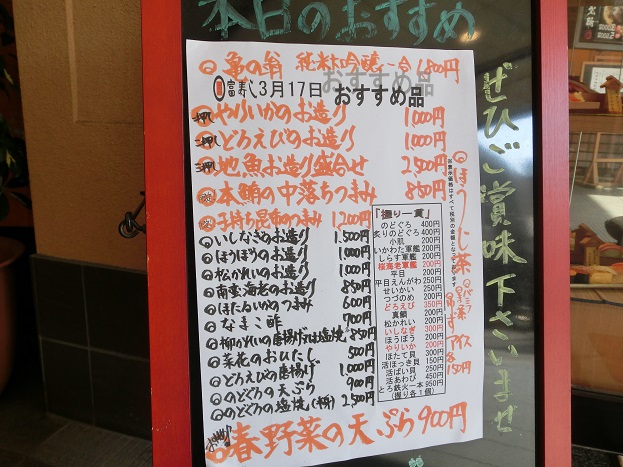 本日のおすすめ
亀の翁 純米大吟醸 一合 1,800円
おすすめ品
富寿し 3月17日 おすすめ品
一押し やりいかのお造り 1,000円
二押し どろえびのお造り 1,000円
三押し 地魚お造り盛合せ 2,500円
本鮪の中落ちつまみ 850円
子持ち昆布のつまみ 1,200円
いしなぎのお造り 1,500円
ほうぼうのお造り 1,000円
松かれいのお造り 1,000円
南蛮海老のお造り 850円
ほたるいかのつまみ 600円
なまこ酢 700円
柳かれいの唐揚げ又は塩焼 850円
菜花のおひたし 500円
どろえびの唐揚げ 1,000円
のどぐろの天ぷら 900円
のどぐろの塩焼 2,500円
春野菜の天ぷら 900円
『握り一貫』
のどぐろ 400円
炙りのどぐろ 400円
小肌 200円
いかわた軍艦 200円
しらす軍艦 200円
桜海老軍艦 200円
平目 200円
平目えんがわ 250円
せいかい 250円
つづのめ 200円
どろえび 350円
真鯛 200円
松かれい 200円
いしなぎ 300円
ほうぼう 200円
やりいか 200円
ほたて貝 300円
活ほっき貝 150円
活ばい貝 250円
活あわび 450円
とろ鉄火一本 950円
(握り各1個)
ほうじ茶
アイス
各150円
ぜひご賞味下さいませ